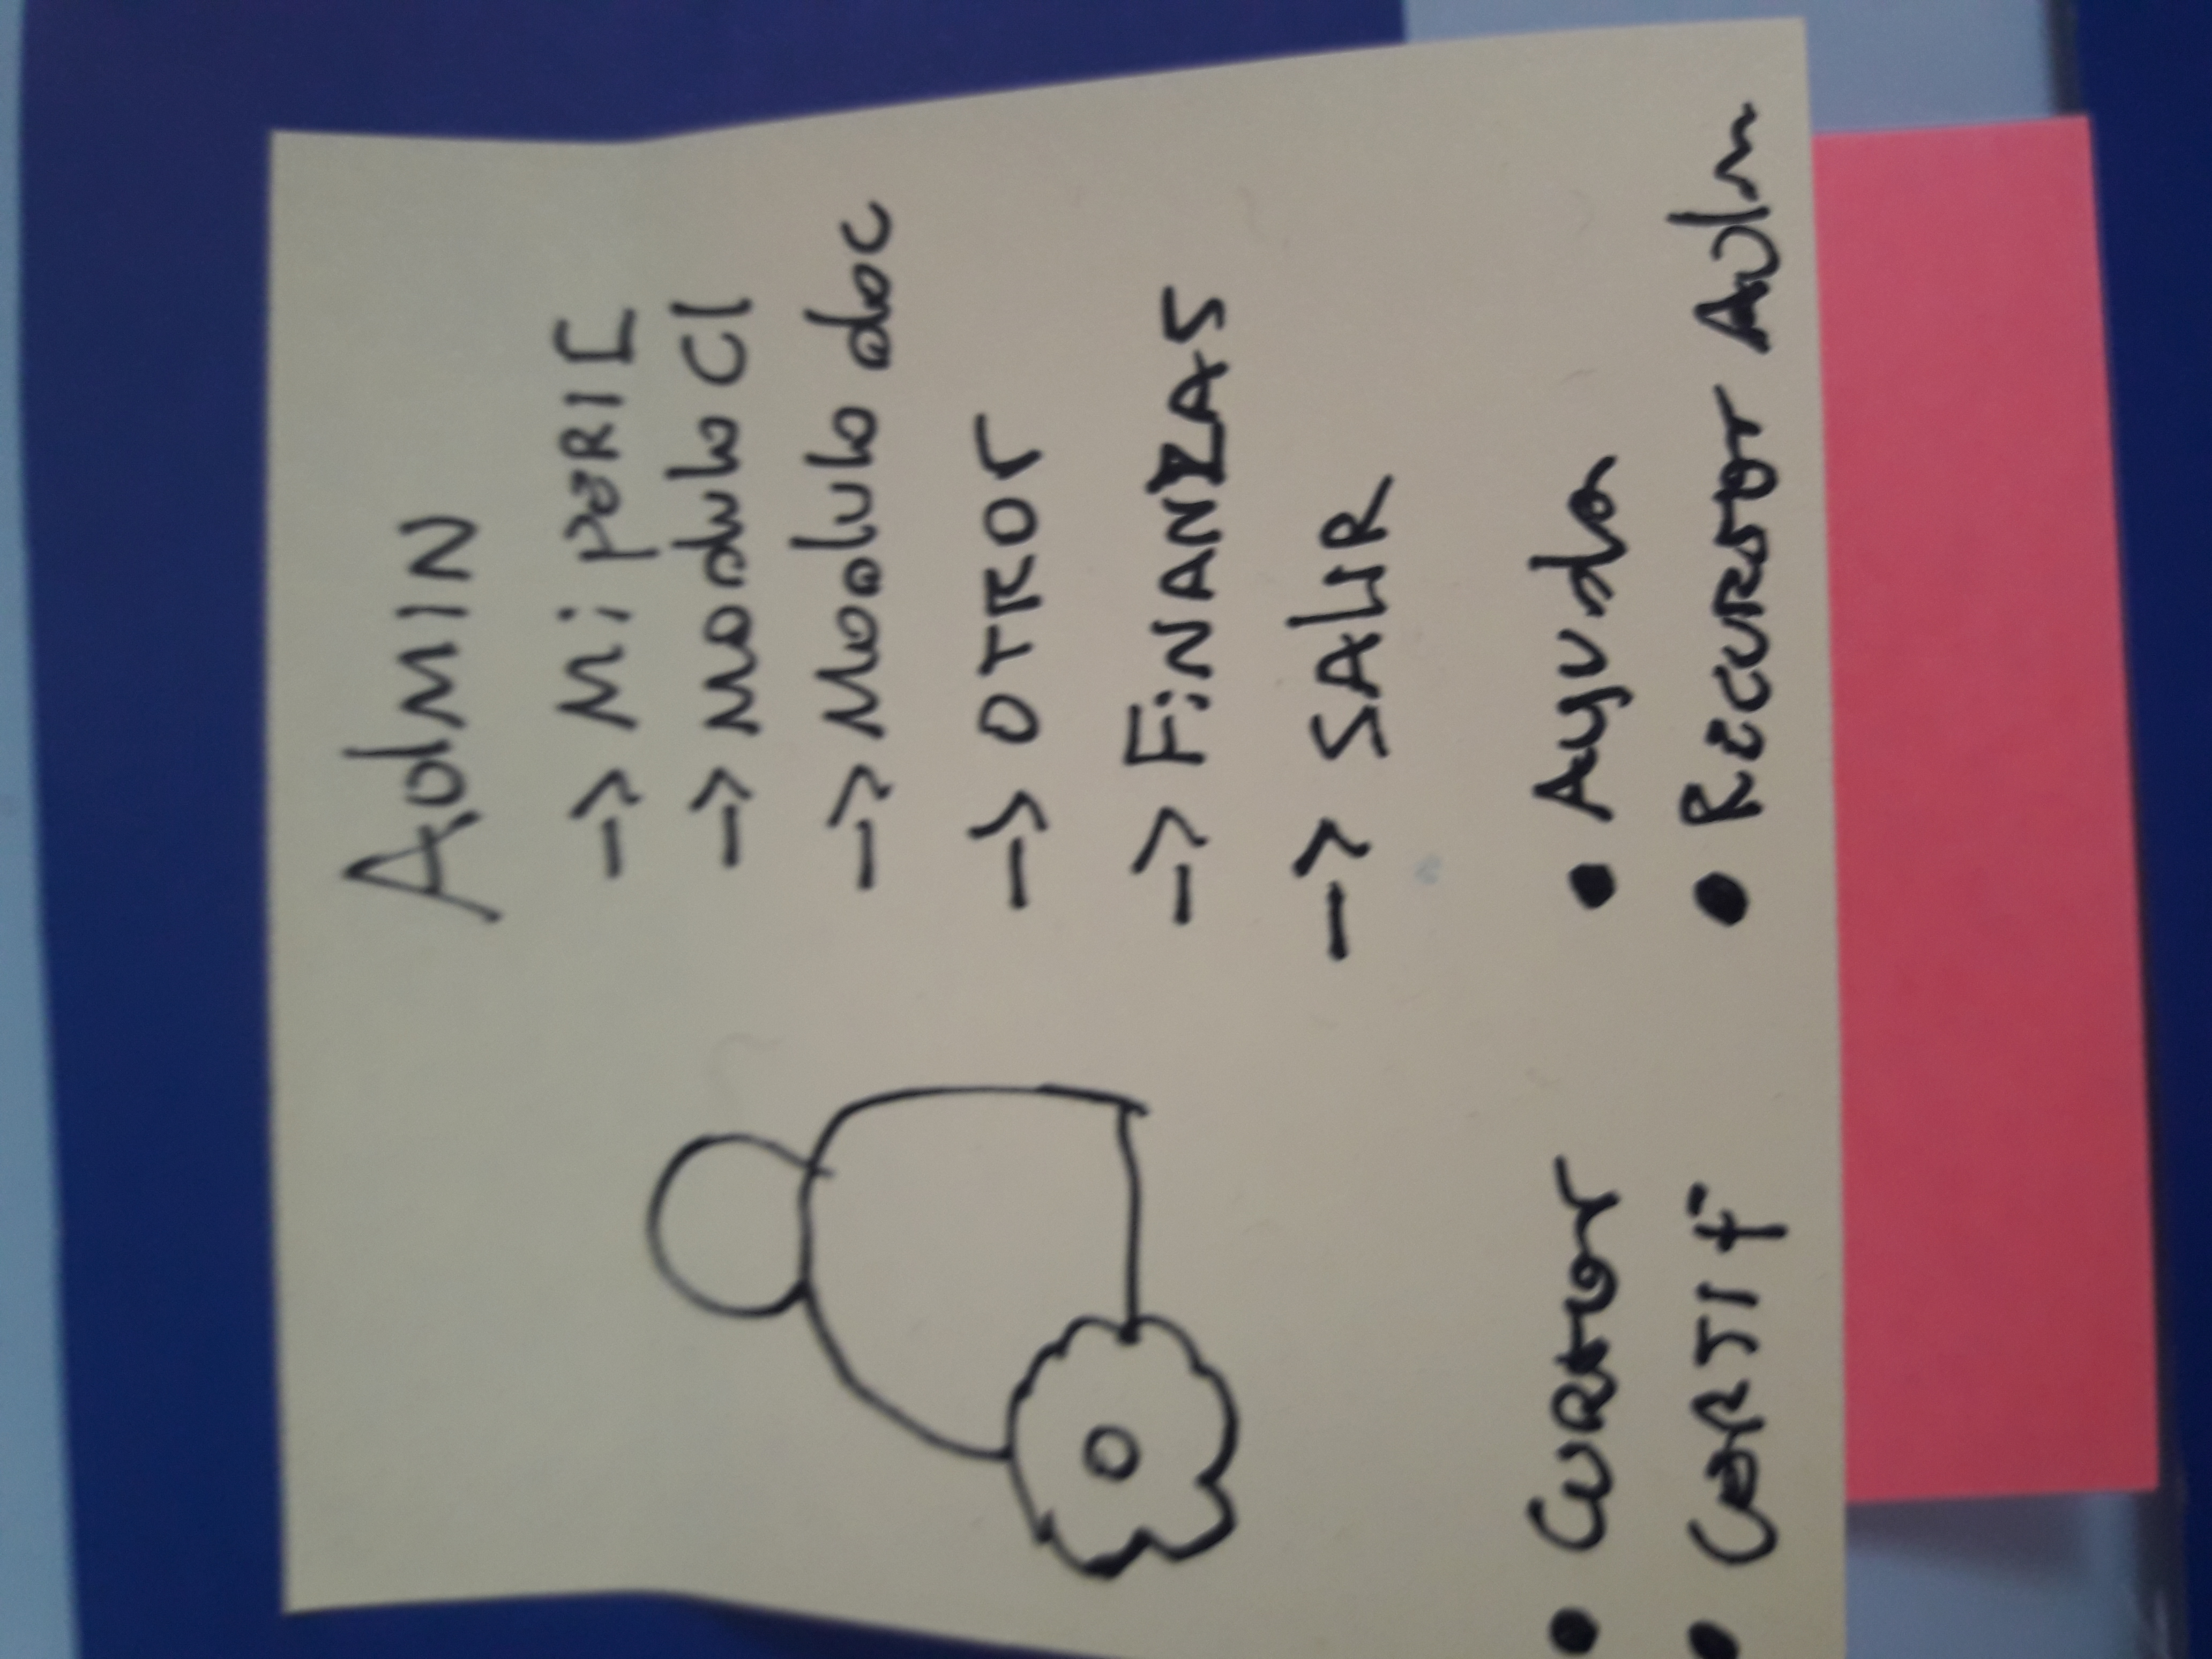 Admin
-> Mi perfil
-> Modulo Cl
-> Modulo doc
-> otros
-> Finanzas
-> Salir
• Cursos
• Certif
• Ayuda
• Recursos Adm